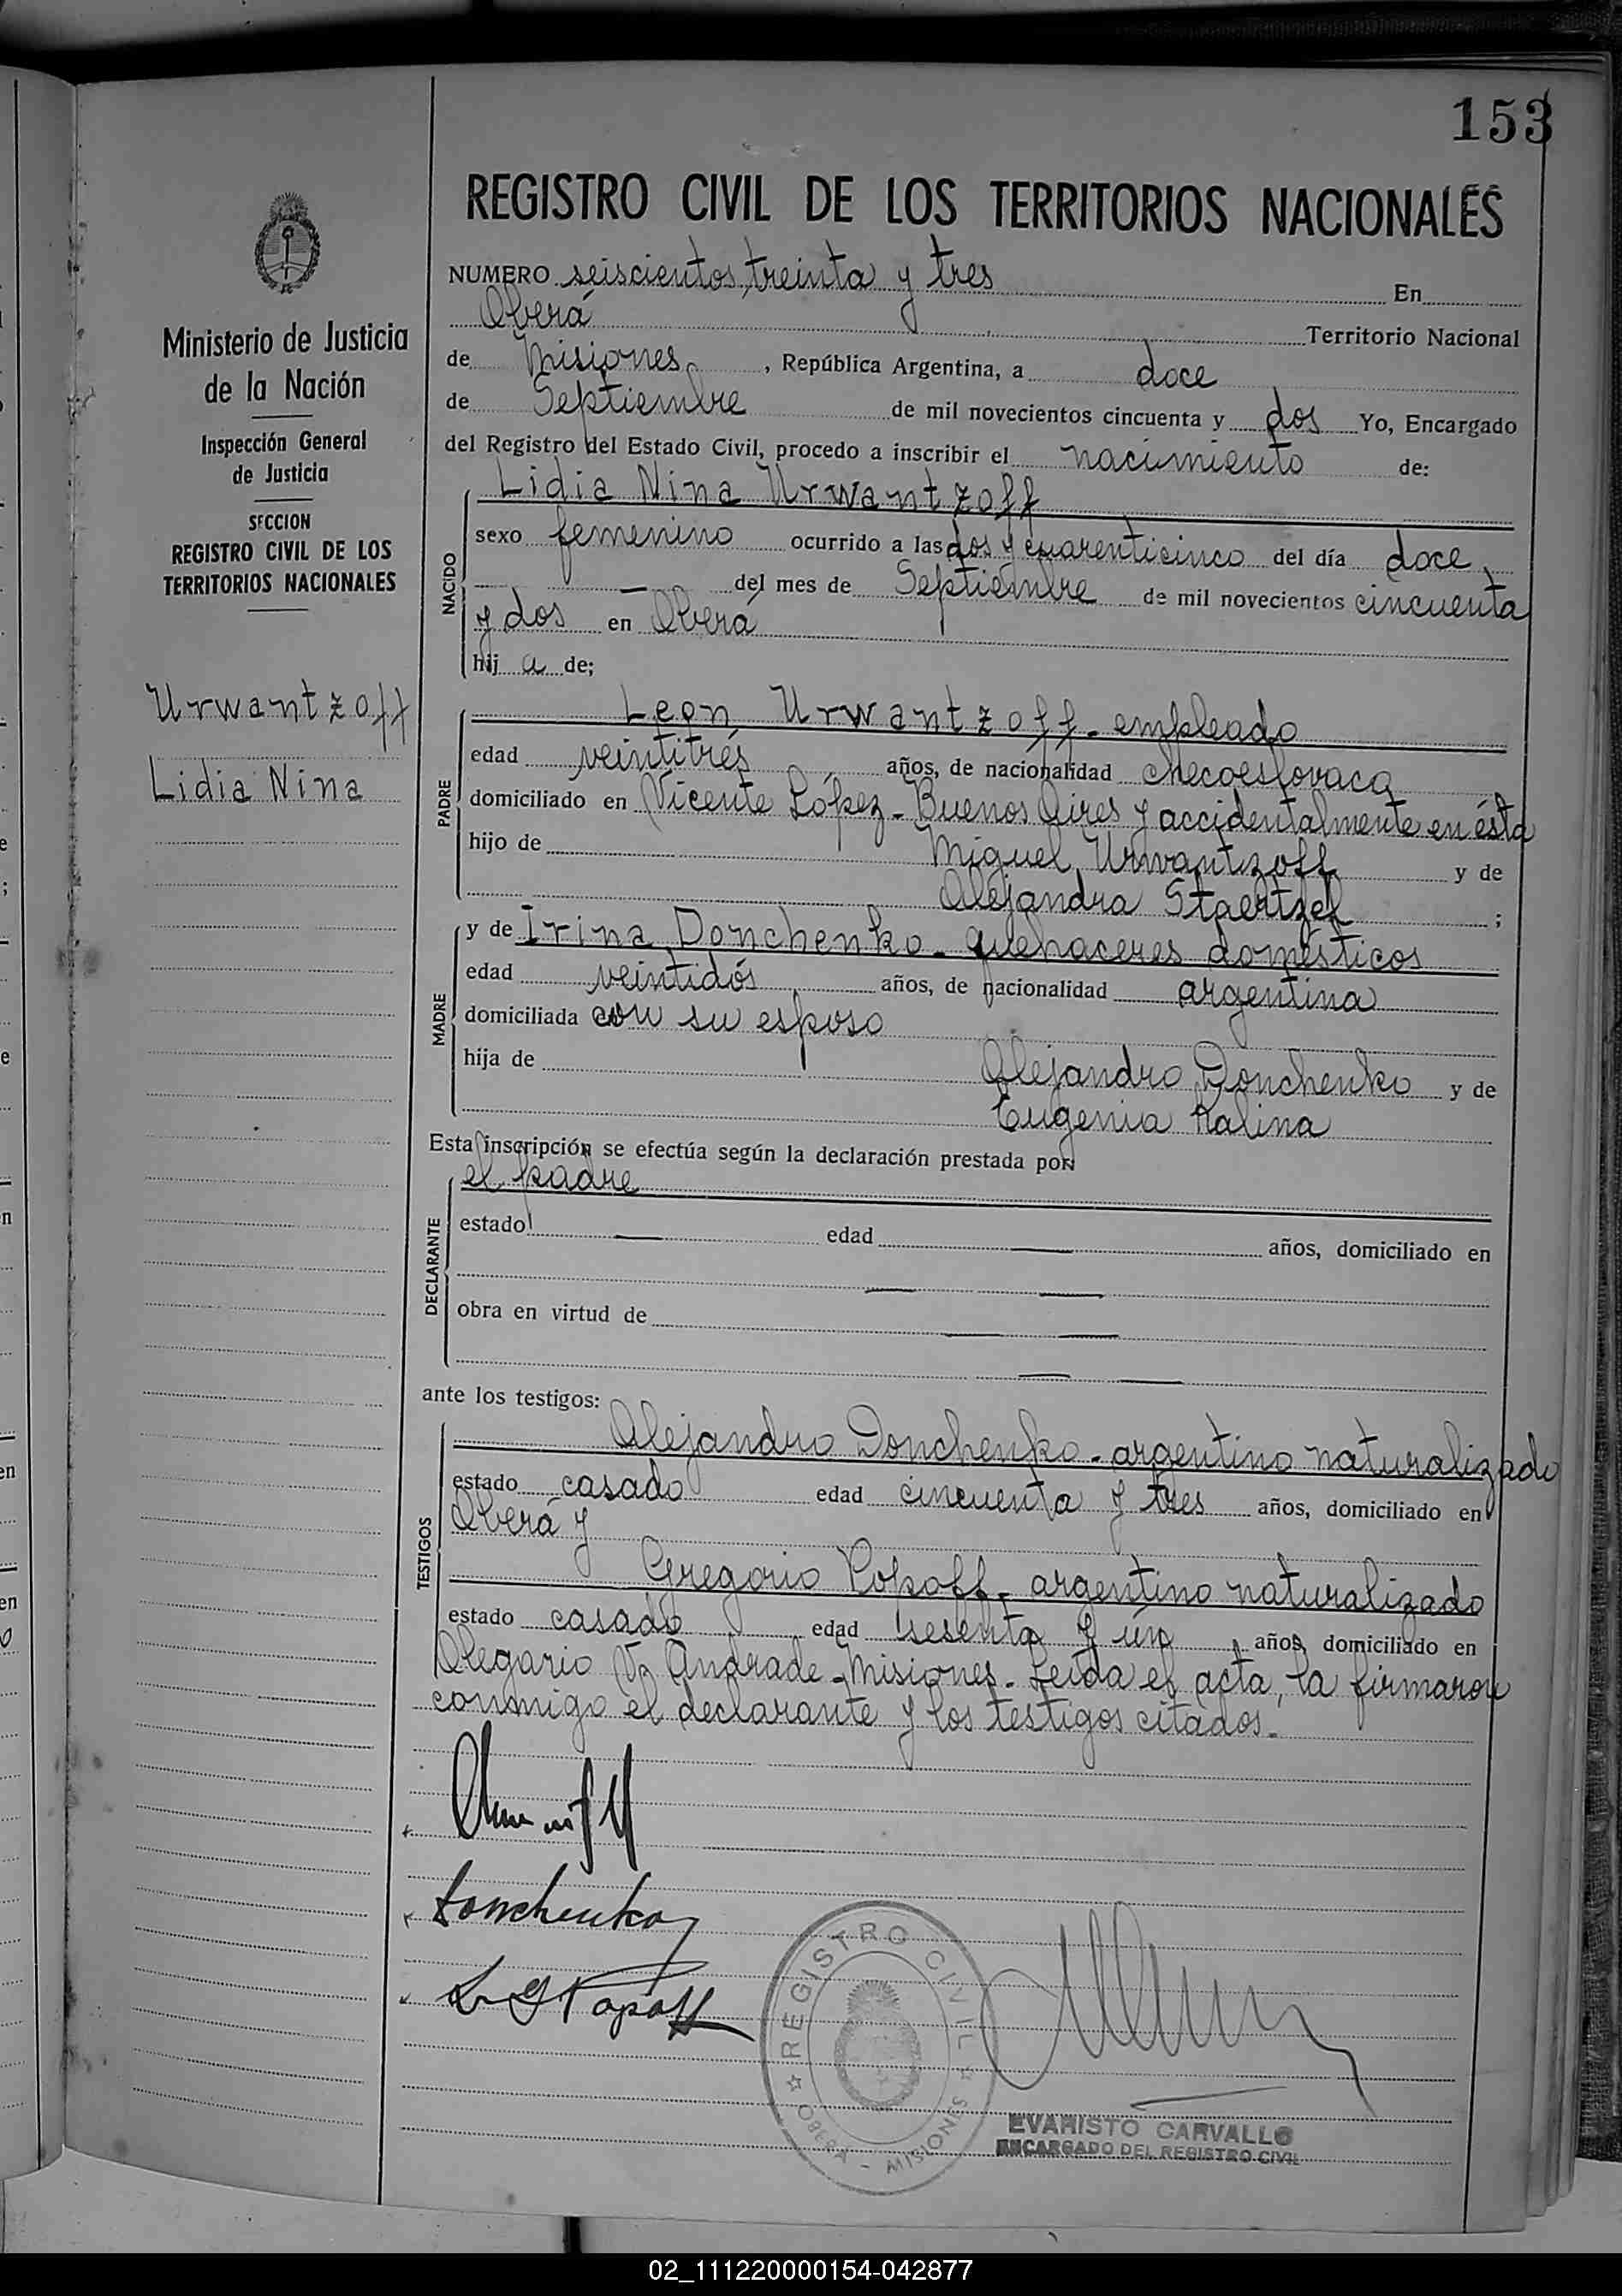 153
REGISTRO CIVIL DE LOS TERRITORIOS NACIONALES
NUMERO seiscientos treinta y tres En
Oberá Territorio Nacional
de Misiones, República Argentina, a doce
de Septiembre de mil novecientos cincuenta y dos Yo, Encargado
del Registro del Estado Civil, procedo a inscribir el nacimiento de:
NACIDO
Lidia Nina Urwantzoff
sexo femenino ocurrido a las dos y cuarenticinco del día doce
— del mes de Septiembre de mil novecientos cincuenta
y dos en Oberá
hija de;
PADRE
Leon Urwantzoff - empleado
edad veintitrés años, de nacionalidad checoeslovaca
domiciliado en Vicente López - Buenos Aires y accidentalmente en ésta
hijo de Miguel Urwantzoff y de
Alejandra Staertzel ;
MADRE
y de Irina Donchenko - quehaceres domésticos
edad veintidós años, de nacionalidad argentina
domiciliada con su esposo
hija de Alejandro Donchenko y de
Eugenia Kalina
Esta inscripción se efectúa según la declaración prestada por:
DECLARANTE
el padre
estado — edad — años, domiciliado en
— —
obra en virtud de — —
— —
ante los testigos:
TESTIGOS
Alejandro Donchenko - argentino naturalizado
estado casado edad cincuenta y tres años, domiciliado en
Oberá y
Gregorio Popoff - argentino naturalizado
estado casado edad sesenta y ún años, domiciliado en
Olegario V. Andrade - Misiones - Leída el acta, la firmaron
conmigo el declarante y los testigos citados.-
Donchenko
Popoff
REGISTRO CIVIL
OBERA - MISIONES
EVARISTO CARVALLO
ENCARGADO DEL REGISTRO CIVIL
Ministerio de Justicia
de la Nación
Inspección General
de Justicia
SECCION
REGISTRO CIVIL DE LOS
TERRITORIOS NACIONALES
Urwantzoff
Lidia Nina
02_111220000154-042877